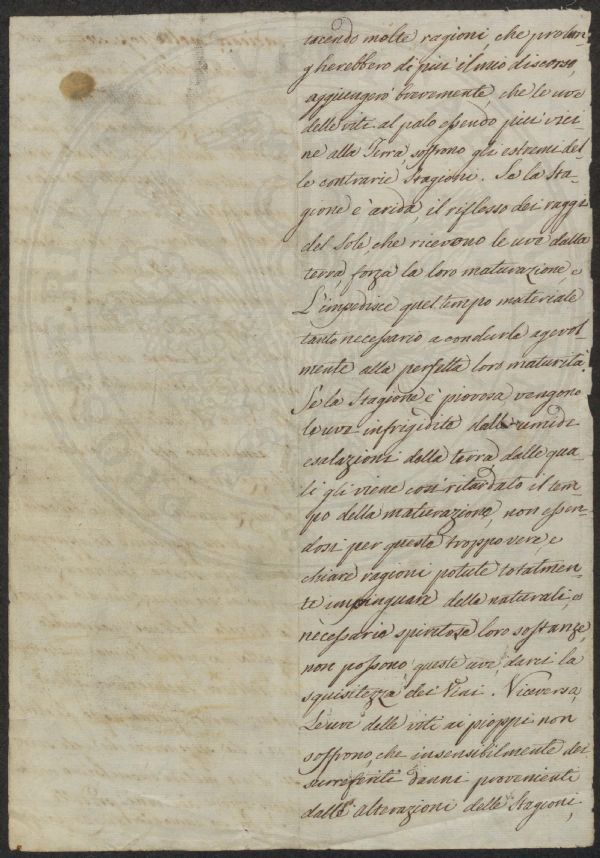 tacendo molte ragioni, che prolun-
gherebbero di più il mio discorso,
aggiungerò brevemente, che le uve
delle viti al palo essendo più vici-
ne alla Terra, soffrono gli estremi del-
le contrarie Stagioni. Se la Sta-
gione è arida, il riflesso dei raggi
del Sole, che ricevono le uve dalla
terra, forza la loro maturazione e
L'impedisce quel tempo materiale
tanto necessario a condurle agevol-
mente alla perfetta loro maturità.
Se la Stagione è piovosa vengono
le uve infrigidite dalle umidi
esalazioni della terra, dalle qua-
li gli viene così ritardato il tem-
po della maturazione, non essen-
dosi per queste troppo vere, e
chiare ragioni potute totalmen-
te impinguare delle naturali, e
necessarie spiritose loro sostanze,
non possono, queste uve, darci la
squisitezza dei Vini. Viceversa,
Le uve delle viti ai pioppi non
soffrono, che insensibilmente dei
surriferiti danni provenienti
dalle alterazioni delle Stagioni,